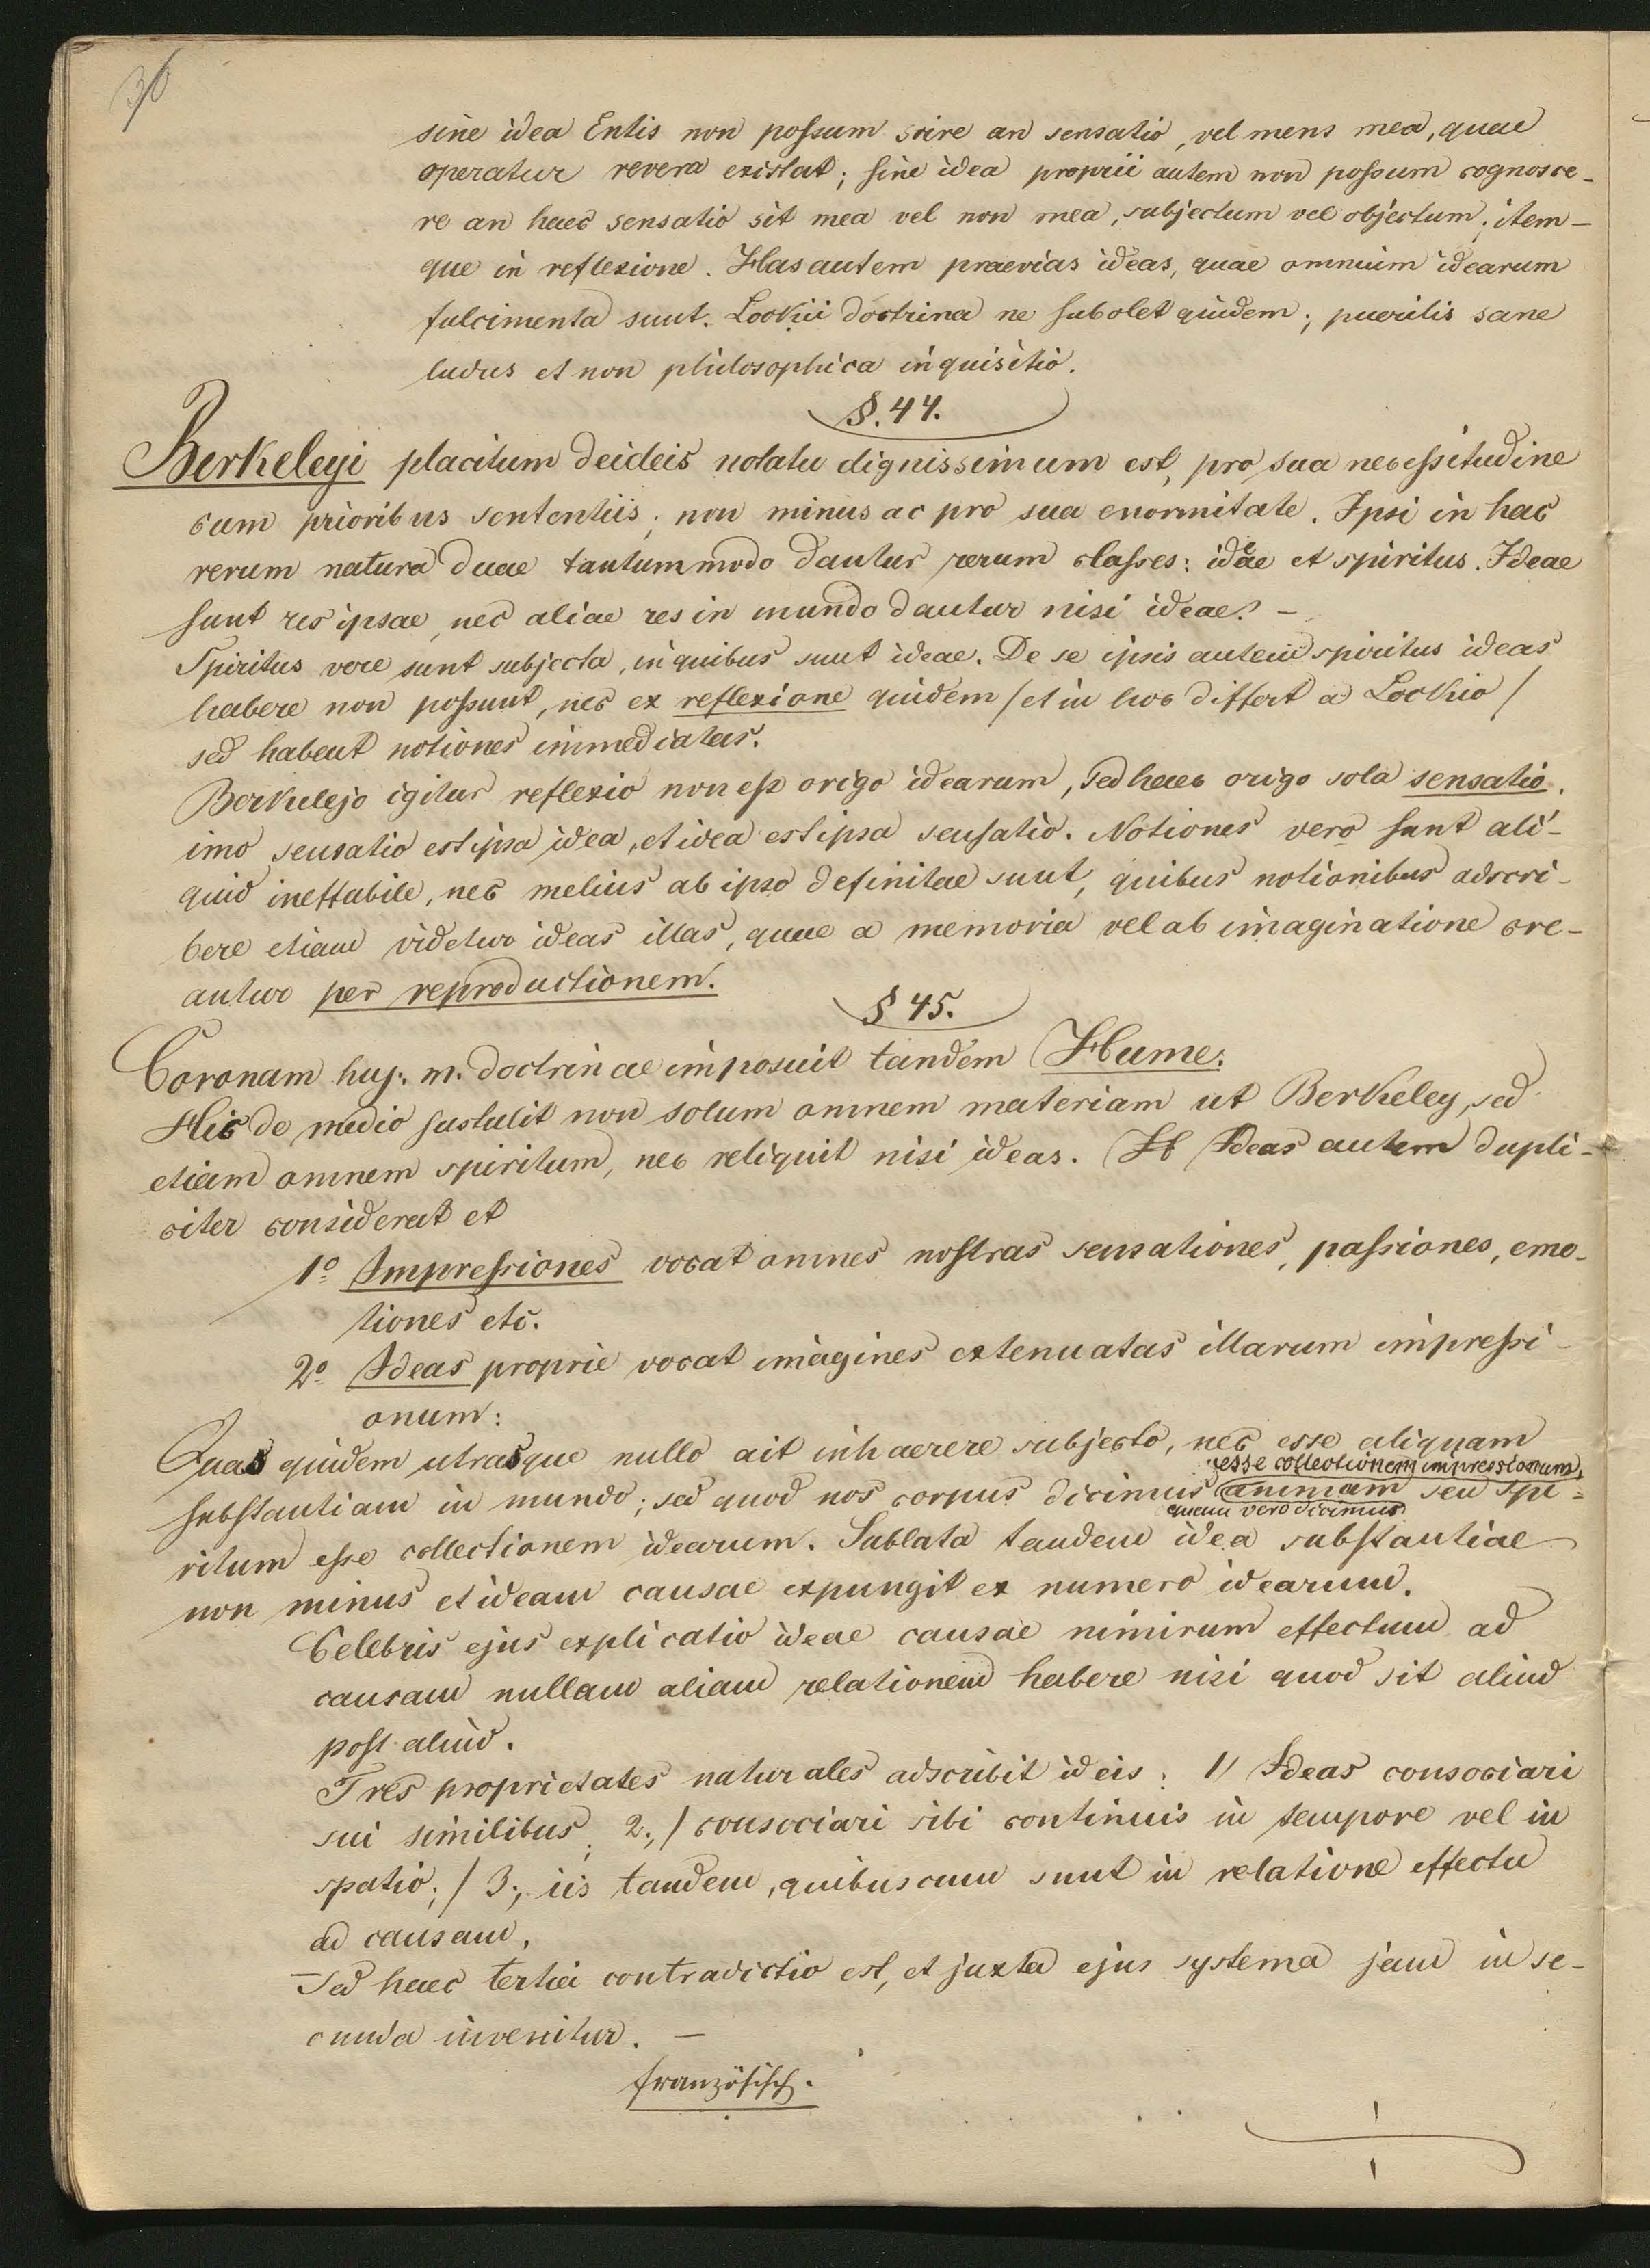 36
sine idea Entis non possum scire an sensatio, vel mens mea, quae
operatur revera existat; sine idea proprii autem non possum cognosce-
re an haec sensatio sit mea vel non mea, subjectum vel objectum; item-
que in reflexione. Has autem praevias ideas, quae omnium idearum
fulcimenta sunt. Lockii doctrina ne subolet quidem; puerilis sane
ludus et non philosophica inquisitio.
§. 44.
Berkeleyi placitum de ideis notatu dignissimum est, pro sua necessitudine
cum prioribus sententiis; non minus ac pro sua enormitate. Ipsi in hac
rerum natura duae tantummodo dantur rerum classes: ideae et spiritus. Ideae
sunt res ipsae, nec aliae res in mundo dantur nisi ideae. –
Spiritus vere sunt subjecta, in quibus sunt ideae. De se ipsis autem spiritus ideas
habere non possunt, nec ex reflexione quidem /et in hoc differt a Lockio/
sed habent notiones immediatas.
Berkelejo igitur reflexio non est origo idearum, sed haec origo sola sensatio.
imo sensatio est ipsa idea, et idea est ipsa sensatio. Notiones vero sunt ali-
quid ineffabile, nec melius ab ipso definitae sunt, quibus notionibus adscri-
bere etiam videtur ideas illas, quae a memoria vel ab imaginatione cre-
antur per reproductionem.
§ 45.
Coronam huj. m. doctrinae imposuit tandem Hume.
Hic de medio sustulit non solum omnem materiam ut Berkeley, sed
etiam omnem spiritum, nec reliquit nisi ideas. Ideas autem dupli-
citer considerat et
1º Impressiones vocat omnes nostras sensationes, passiones, emo-
tiones etc.
2º Ideas proprie vocat imagines extenuatas illarum impressi-
onum:
Quas quidem utrasque nullo ait inhaerere subjecto, nec esse aliquam
esse collectionem impressionum,
substantiam in mundo; sed quod nos corpus dicimus animam seu spi-
quam vero dicimus
ritum esse collectionem idearum. Sublata tandem idea substantiae
non minus et ideam causae expungit ex numero idearum.
Celebris ejus explicatio ideae causae nimirum effectum ad
causam nullam aliam relationem habere nisi quod sit aliud
post aliud.
Tres proprietates naturales adscribit ideis: 1/ Ideas consociari
sui similibus; 2., / consociari sibi continuis in tempore vel in
spatio; / 3., iis tandem, quibuscum sunt in relatione effectu
ad causam.
Sed haec tertia contradictio est, et juxta ejus systema jam in se-
cunda invenitur. –
französisch.